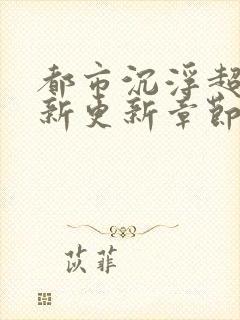 都市沉浮超
新更新章節
苡菲